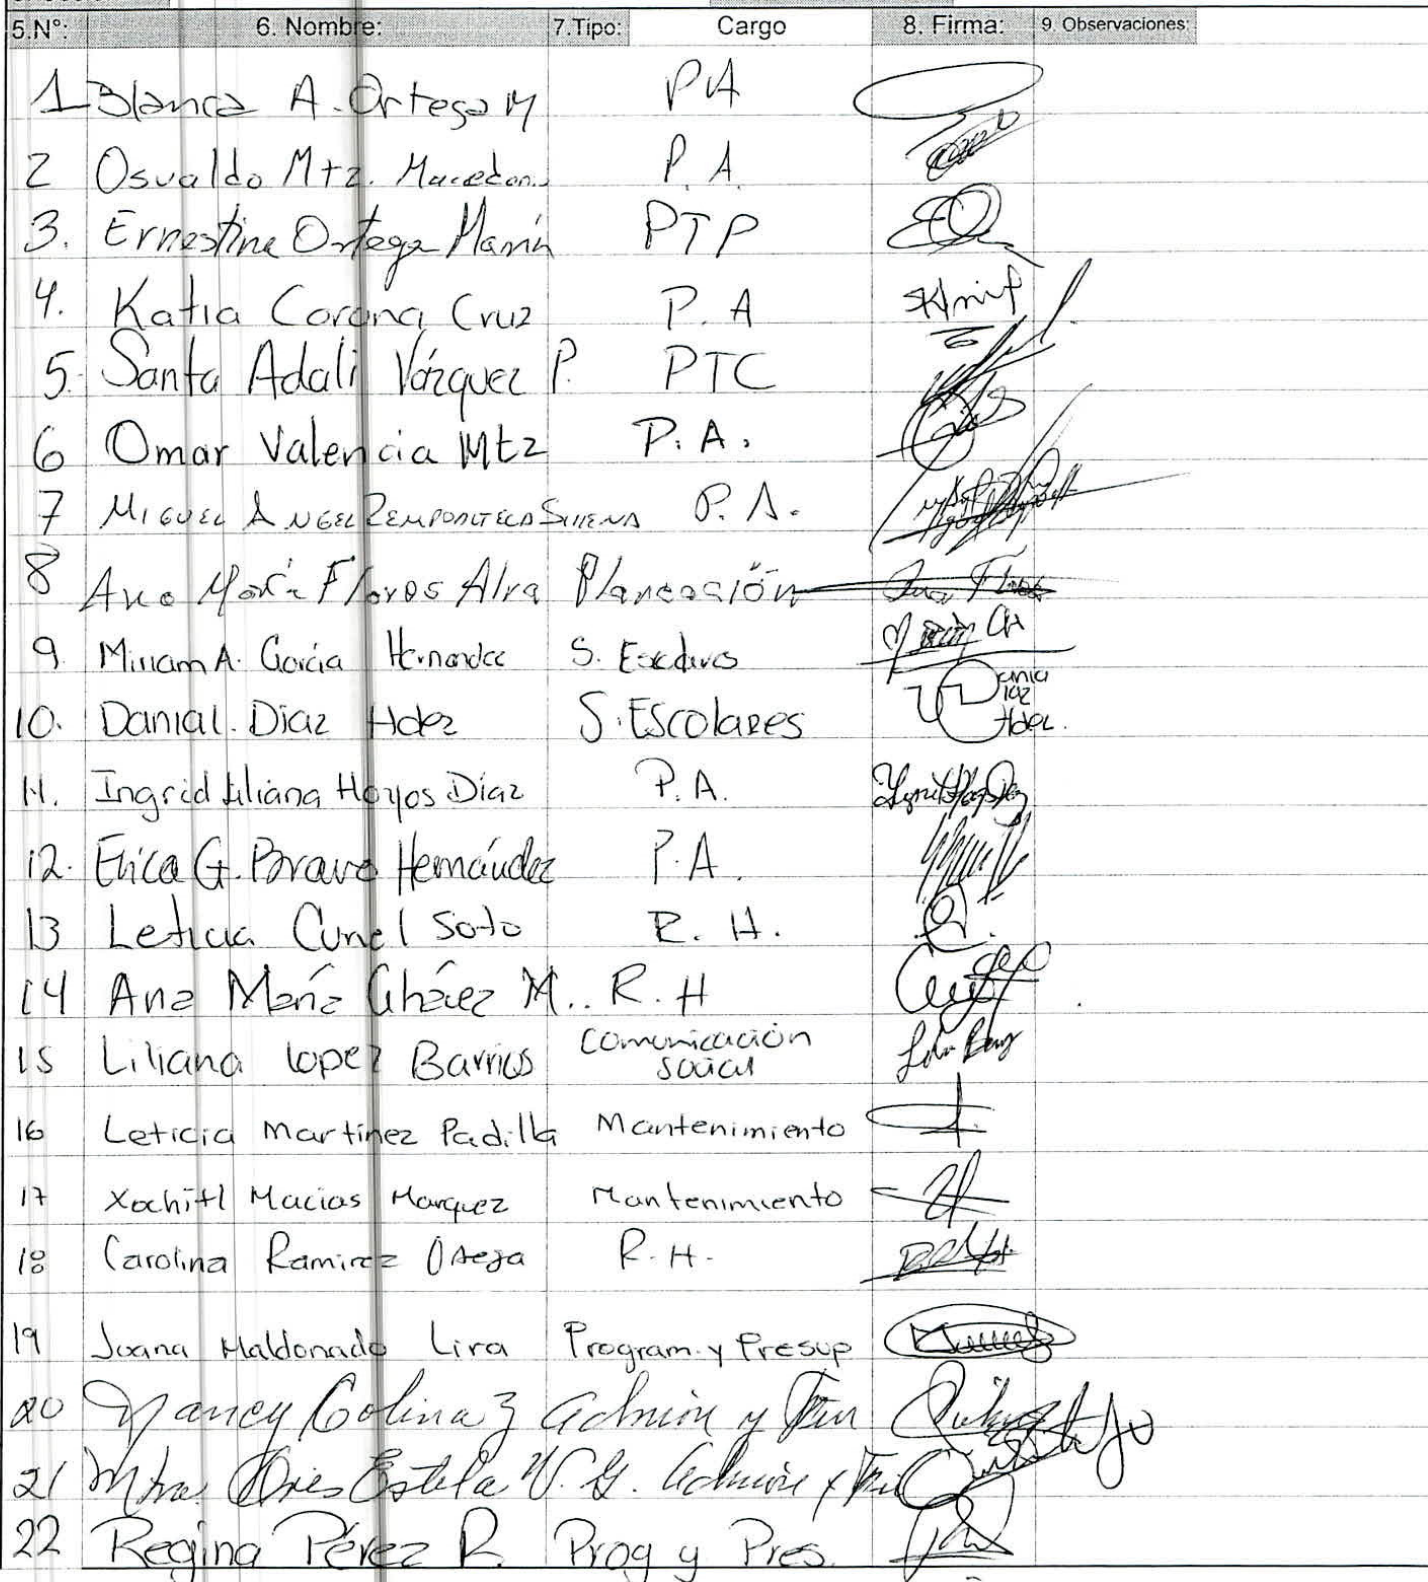 5.N°: 6. Nombre: 7.Tipo: Cargo 8. Firma: 9. Observaciones:
1 Blanca A. Ortega M PA
2 Osvaldo Mtz. Macedon.. P. A.
3. Ernestina Ortega Marín PTP
4. Katia Corona Cruz P. A
5. Santa Adali Vázquez P. PTC
6 Omar Valencia Mtz P. A.
7 MIGUEL ANGEL P. A.
8 Ana María Flores Alva Planeación
9. Miriam A. García Hernandez S. Escolares
10. Danial. Díaz Hdez S. Escolares
11. Ingrid Liliana Hoyos Díaz P. A.
12. Erica G. Bravo Hernández P. A.
13 Leticia Curiel Soto R. H.
14 Ana María Cháez M.. R. H
15 Liliana lopez Barrios Comunicación
social
16 Leticia Martinez Padilla Mantenimiento
17 Xochitl Macias Marquez Mantenimiento
18 Carolina Ramirez Ortega R. H.
19 Joana Maldonado Lira Program. y Presup
20 Nancy Colina Z Admión y Fin
21 Mtra. Estela V. G. Admión y Fin
22 Regina Pérez R. Prog y Pres.